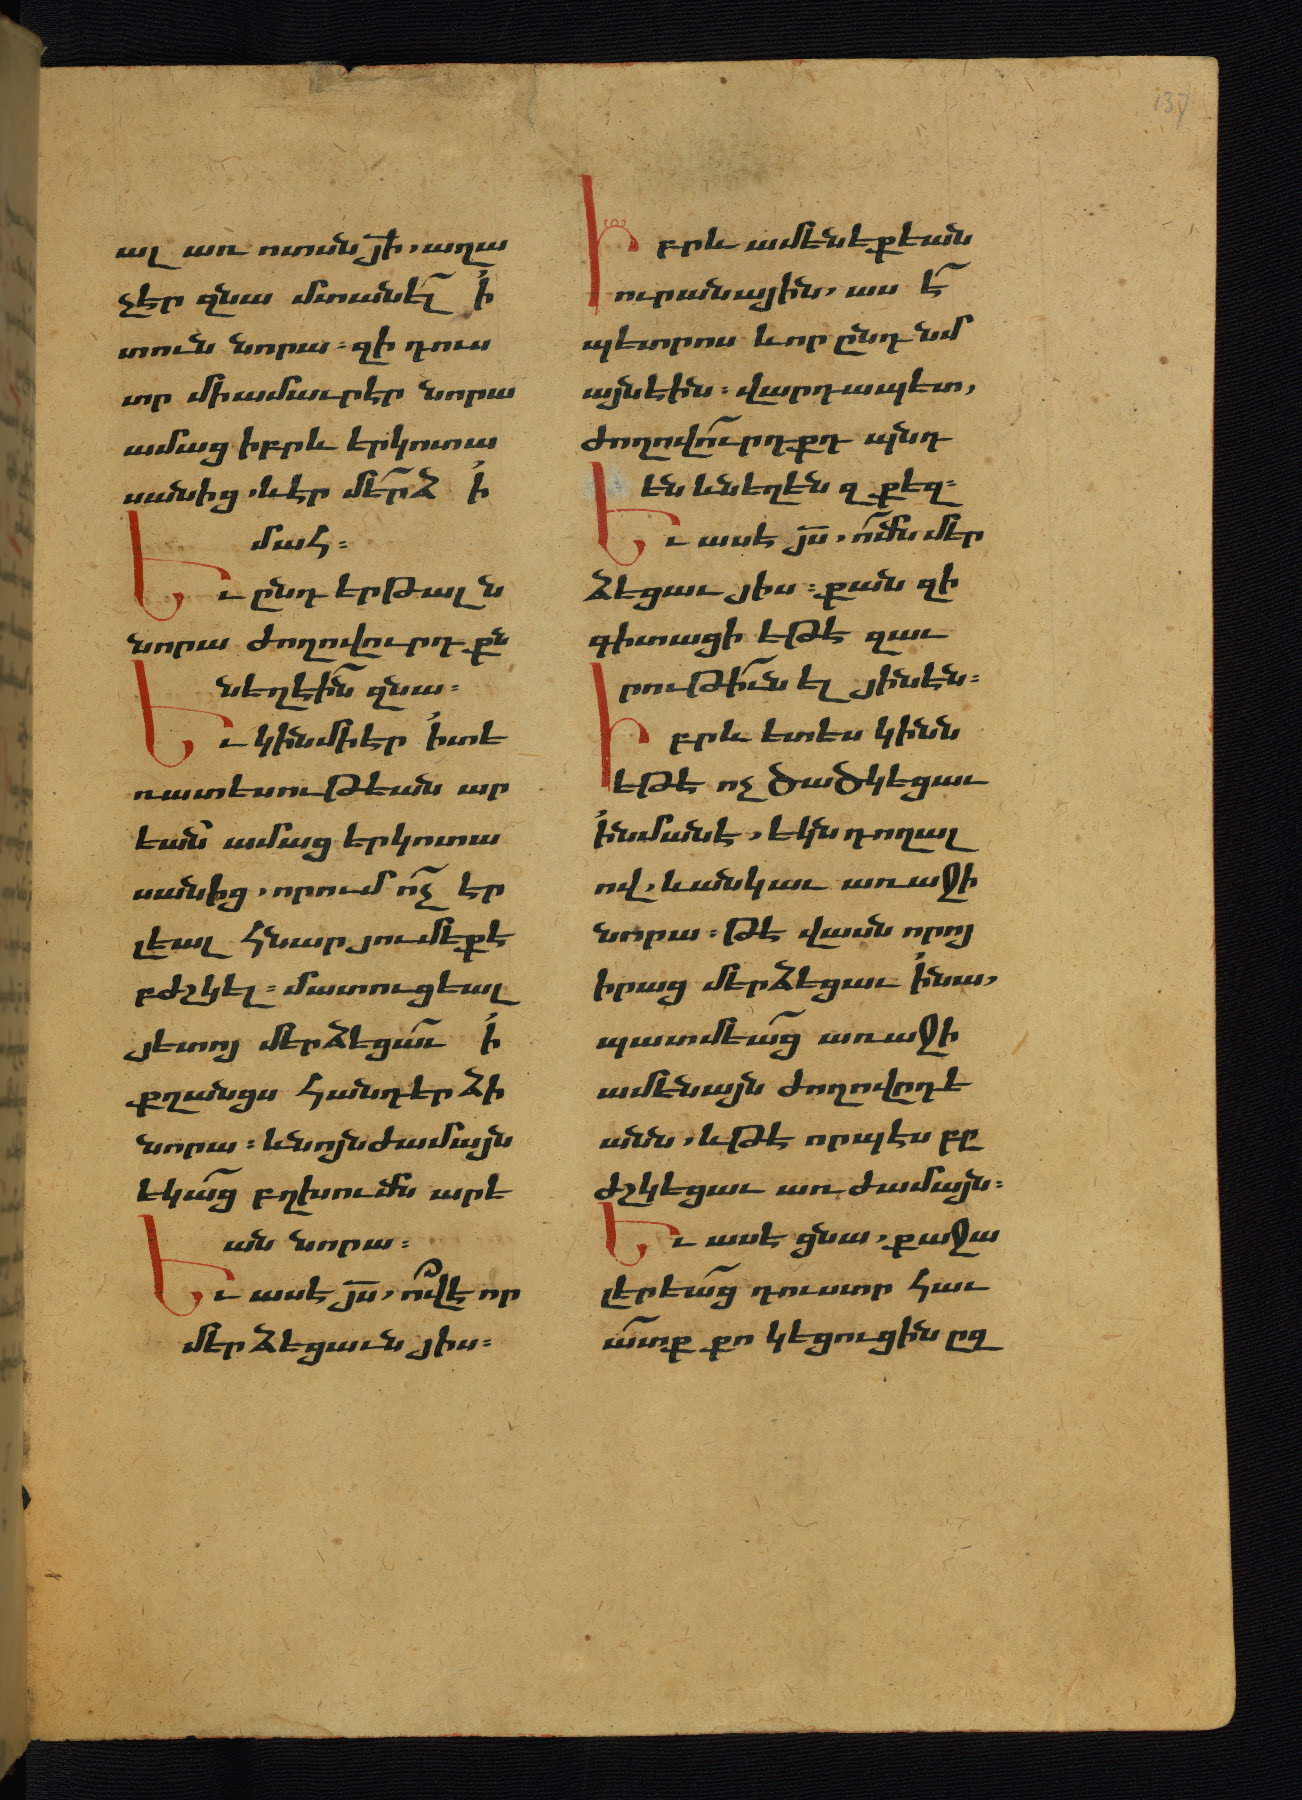 137
ալ առ ոտսն յի, աղա
չէր զնա մտանել ի
տուն նորա. զի դուս
տր միամաւր էր նորա
ամաց իբրև երկոտա
սանից, և էր մերձ ի
մահ.
Եւ ընդ երթալ ն
նորա ժողովուրդքն
նեղեին զնա.
Եւ կին մի էր ի տե
ռատեսութեան ար
եան ամաց երկոտա
սանից, որում ոչ էր
լեալ հնար յումեքէ
բժշկել. մատուցեալ
յետոյ մերձեցաւ ի
քղանցս հանդերձի
նորա. և նոյնժամայն
եկաց բղխումն արե
ան նորա.
Եւ ասէ յս, ո՞վ է որ
մերձեցաւն յիս.
Իբրև ամենեքեան
ուրանային, աս է
պետրոս և որ ընդ նմ
այնեին. վարդապետ,
ժողովուրդքդ պնդ
են և նեղեն զքեզ.
Եւ ասէ յս, ոմն մեր
ձեցաւ յիս. քան զի
գիտացի եթէ զաւ
րութիւն ել յինէն.
Իբրև ետես կինն
եթէ ոչ ծածկեցաւ
ինմանէ, եկն դողալ
ով, և անկաւ առաջի
նորա. թէ վասն որոյ
իրաց մերձեցաւ ինա,
պատմեաց առաջի
ամենայն ժողովրդե
անն, և թէ որպէս բը
ժշկեցաւ առժամայն.
Եւ ասէ ցնա, քաջա
լերեաց դուստր հաւ
ատք քո կեցուցին ըզ